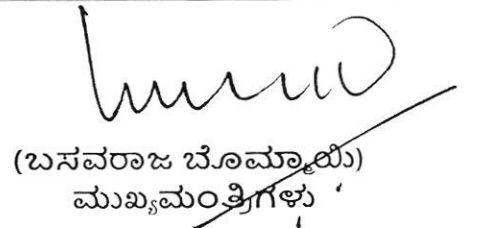 (ಬಸವರಾಜ ಬೊಮ್ಮಾಯಿ)
ಮುಖ್ಯಮಂತ್ರಿಗಳು